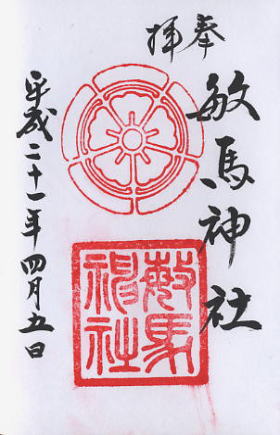 奉拝
敏馬神社
敏馬神社
平成二十一年四月五日